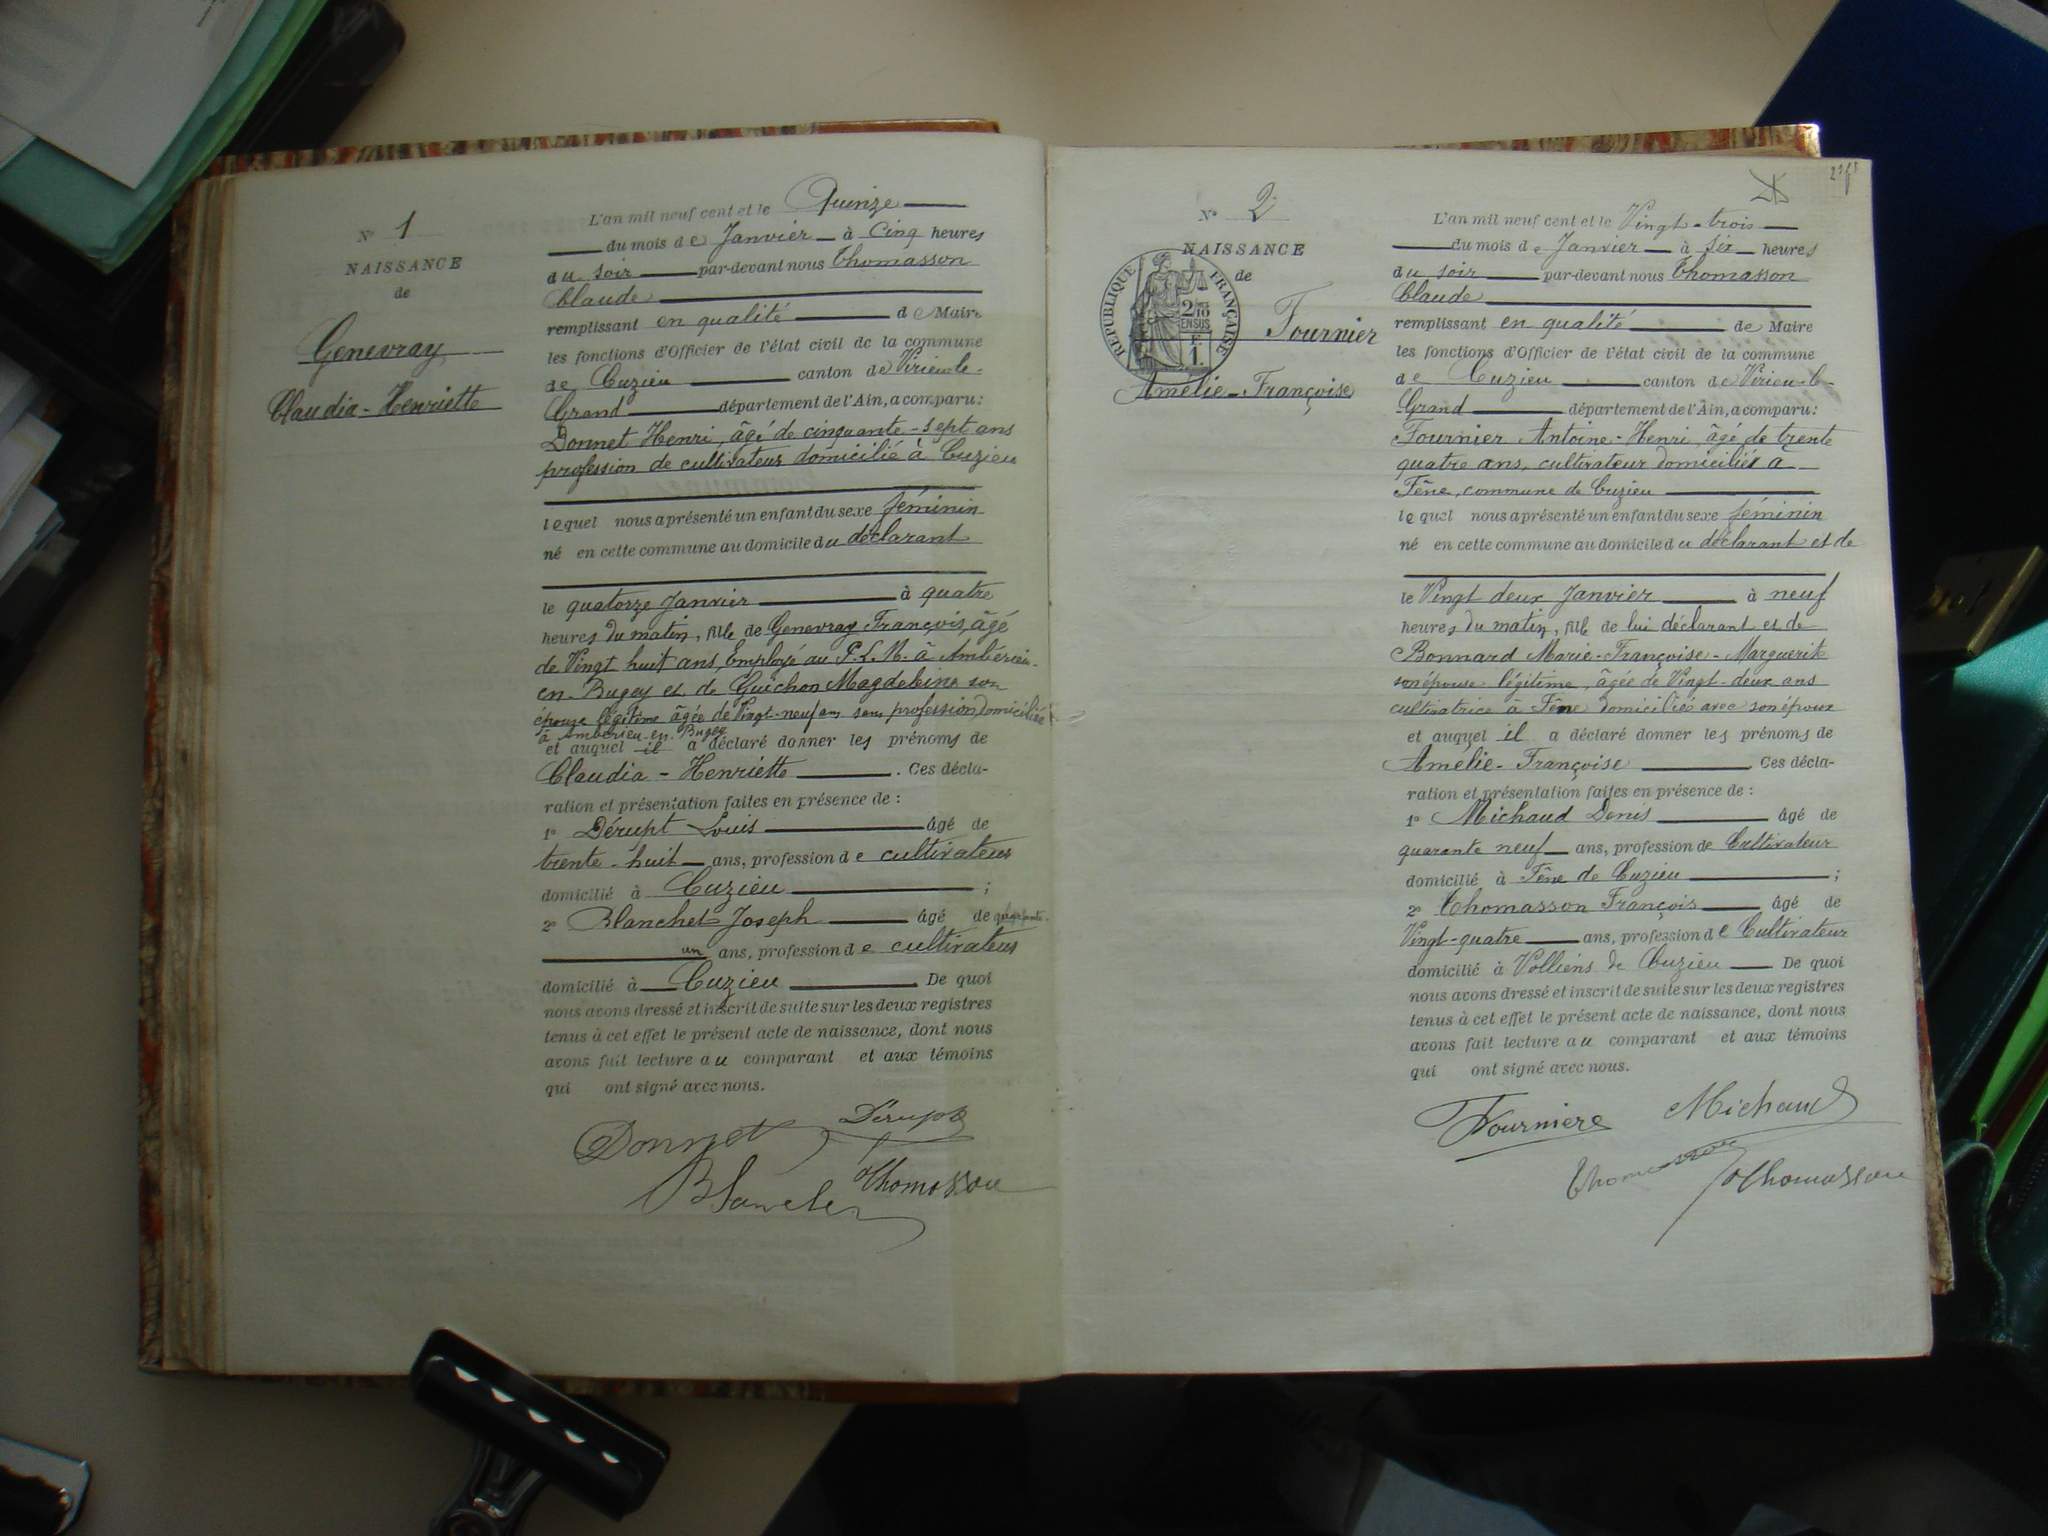 N° 1
NAISSANCE
de
Genevray
Claudia-Henriette
L'an mil neuf cent et le Quinze
du mois de Janvier à Cinq heures
du soir par-devant nous Thomasson
Claude
remplissant en qualité de Maire
les fonctions d'Officier de l'état civil de la commune
de Cuzieu canton de Virieu-le-
Grand département de l'Ain, a comparu:
Donnet Henri, âgé de cinquante-sept ans
profession de cultivateur domicilié à Cuzieu
lequel nous a présenté un enfant du sexe féminin
né en cette commune au domicile du déclarant
le quatorze Janvier à quatre
heures du matin, fille de Genevray François, âgé
de Vingt huit ans, Employé au P.L.M. à Ambérieu-
en-Bugey et de Guichon Magdeleine son
épouse légitime âgée de Vingt-neuf ans sans profession, domiciliée
à Ambérieu-en-Bugey
et auquel il a déclaré donner les prénoms de
Claudia-Henriette . Ces décla-
ration et présentation faites en présence de :
1° Dérupt Louis âgé de
trente-huit ans, profession de cultivateur
domicilié à Cuzieu ;
2° Blanchet Joseph âgé de quarante-
un ans, profession de cultivateur
domicilié à Cuzieu De quoi
nous avons dressé et inscrit de suite sur les deux registres
tenus à cet effet le présent acte de naissance, dont nous
avons fait lecture au comparant et aux témoins
qui ont signé avec nous.
Donnet Dérupt
Blanchet Thomasson
N° 2
NAISSANCE
de
RÉPUBLIQUE FRANÇAISE
2/10
EN SUS
F.
1.
Fournier
Amélie-Françoise
L'an mil neuf cent et le Vingt-trois
du mois de Janvier à six heures
du soir par-devant nous Thomasson
Claude
remplissant en qualité de Maire
les fonctions d'Officier de l'état civil de la commune
de Cuzieu canton de Virieu-le-
Grand département de l'Ain, a comparu:
Fournier Antoine-Henri, âgé de trente
quatre ans, cultivateur domiciliés à
Fêne, commune de Cuzieu
lequel nous a présenté un enfant du sexe féminin
né en cette commune au domicile du déclarant et de
le Vingt deux Janvier à neuf
heures du matin, fille de lui déclarant et de
Bonnard Marie-Françoise-Marguerite
son épouse légitime, âgée de Vingt-deux ans
cultivatrice à Fêne domiciliée avec son époux
et auquel il a déclaré donner les prénoms de
Amélie-Françoise Ces décla-
ration et présentation faites en présence de :
1° Michaud Denis âgé de
quarante neuf ans, profession de Cultivateur
domicilié à Fêne de Cuzieu ;
2° Thomasson François âgé de
Vingt-quatre ans, profession de Cultivateur
domicilié à Volliens de Cuzieu De quoi
nous avons dressé et inscrit de suite sur les deux registres
tenus à cet effet le présent acte de naissance, dont nous
avons fait lecture au comparant et aux témoins
qui ont signé avec nous.
Fourniere Michaud
Thomasson Thomasson